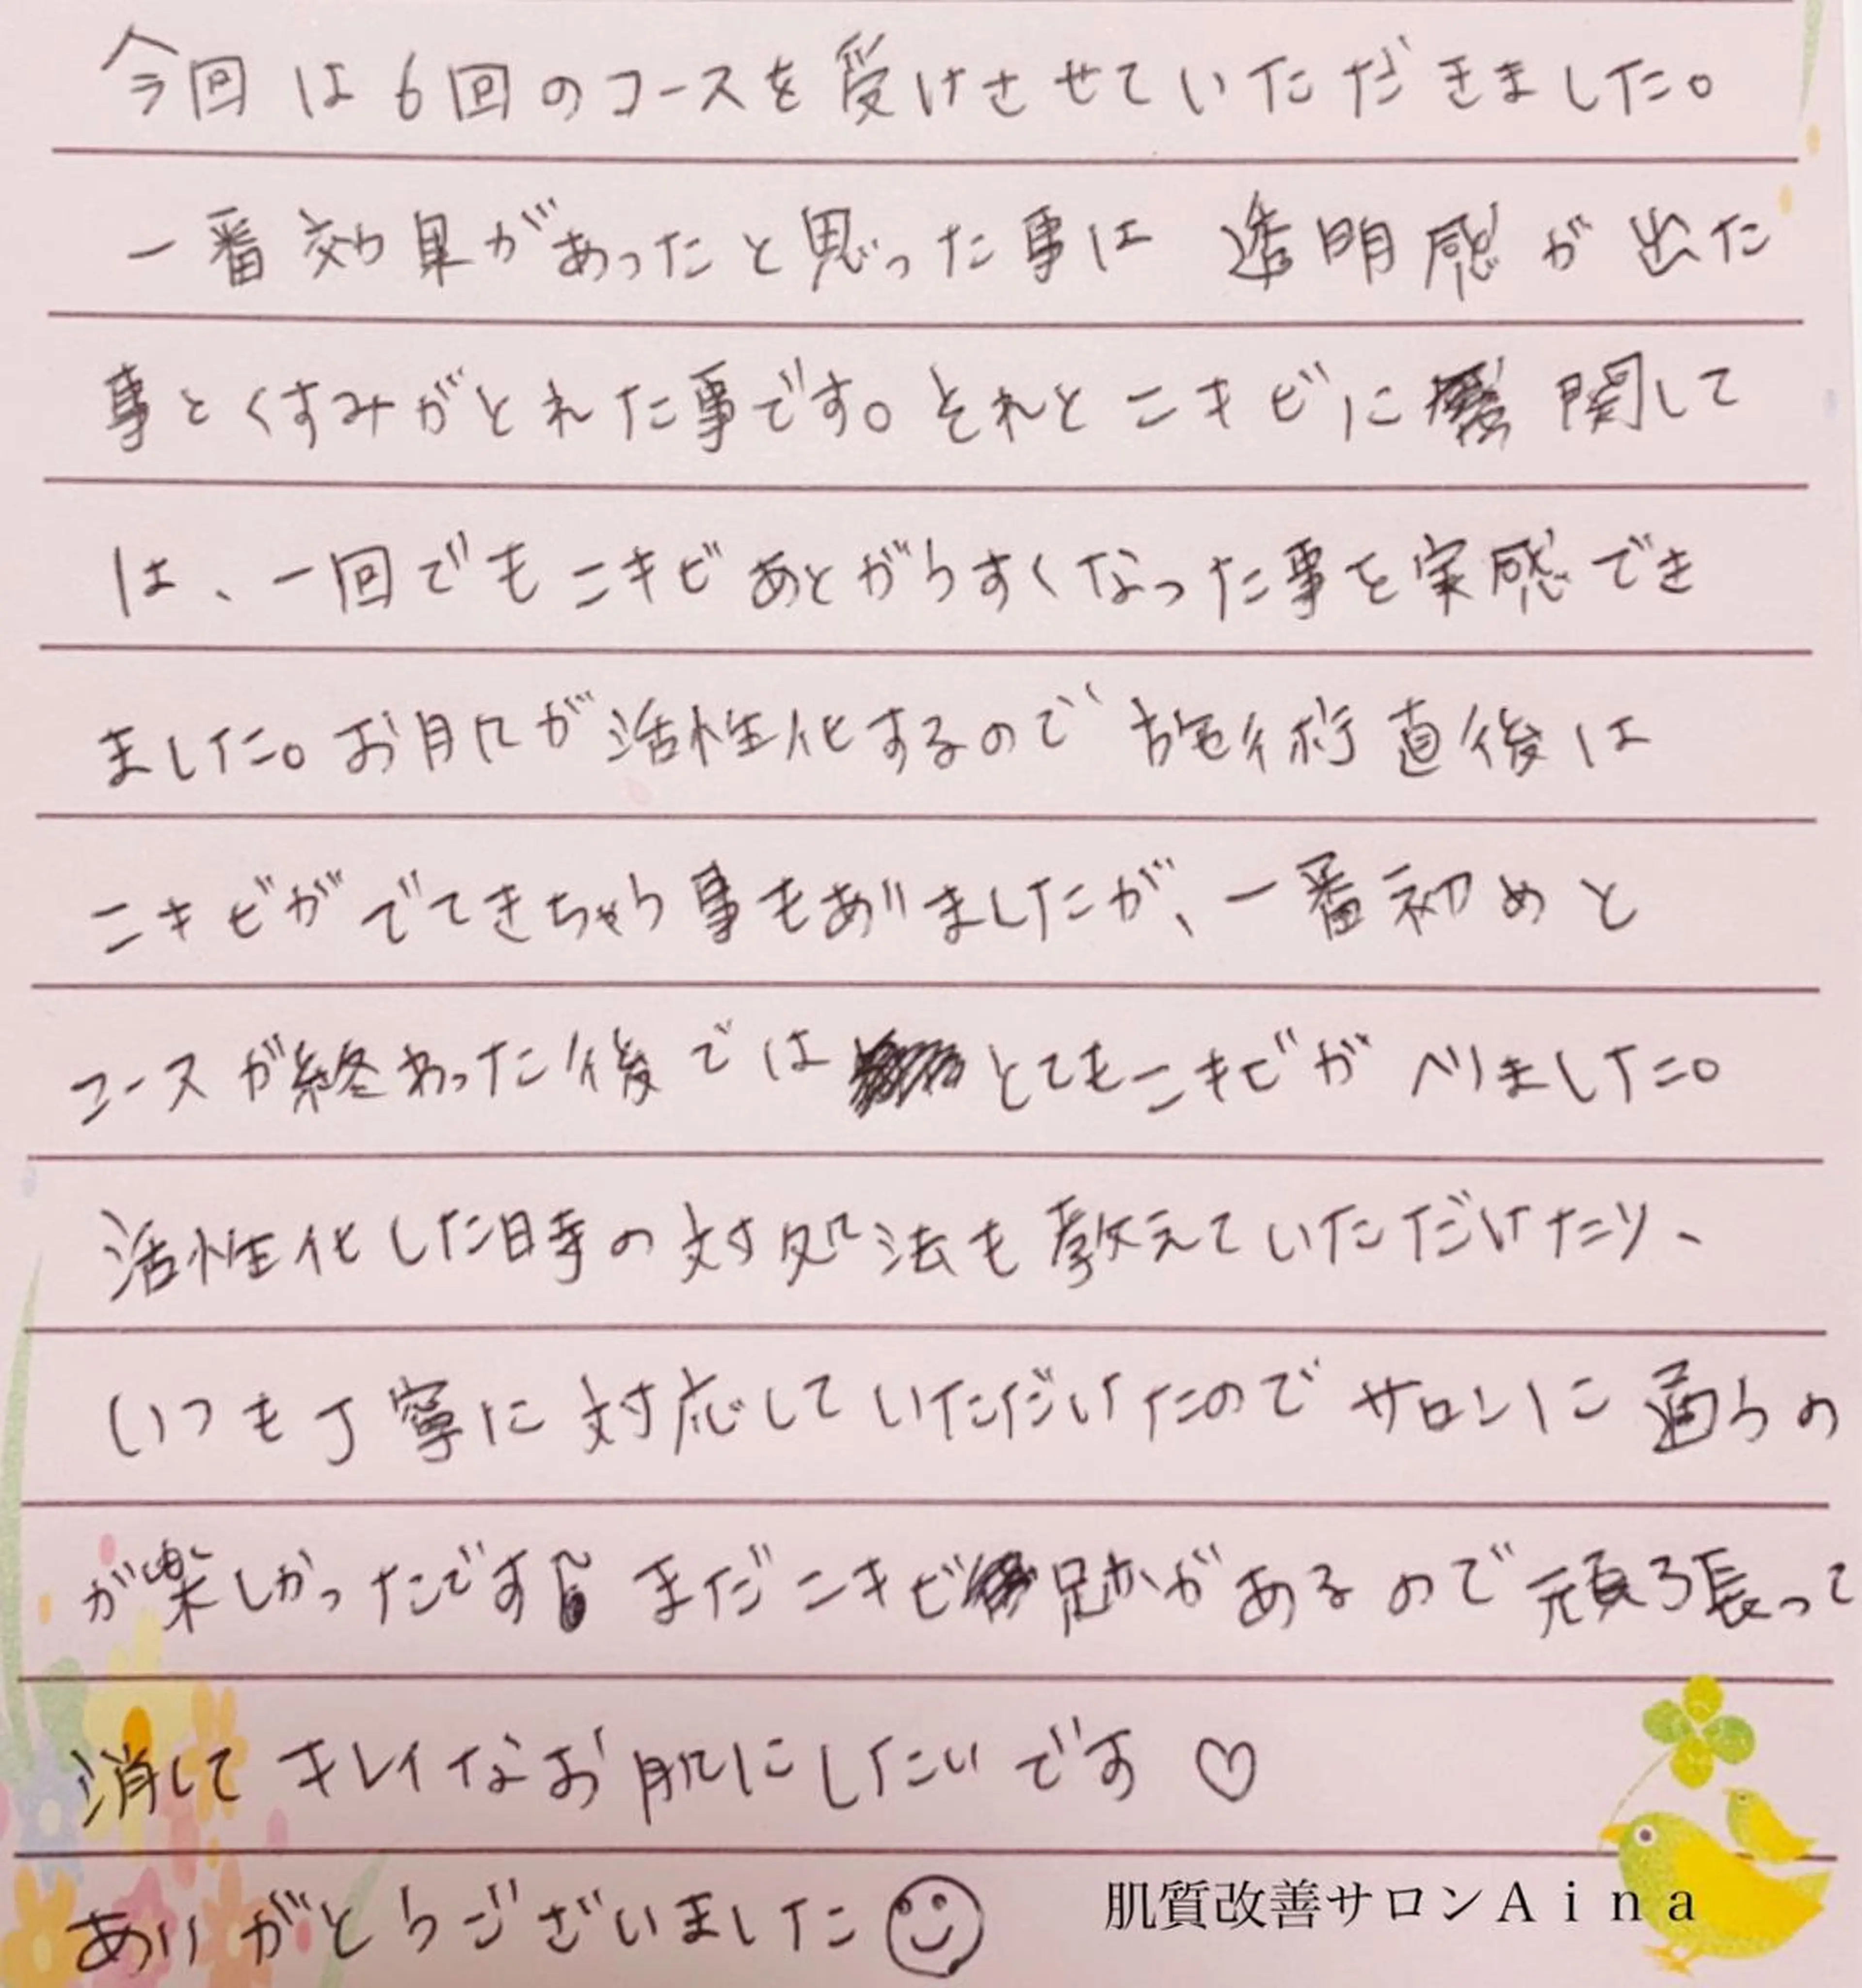 今回は6回のコースを受けさせていただきました。
一番効果があったと思った事は 透明感が出た
事とくすみがとれた事です。それとニキビに 関して
は、一回でもニキビあとがうすくなった事を実感でき
ました。お肌が活性化するので施術直後は
ニキビがでてきちゃう事もありましたが、一番初めと
コースが終わった後では とてもニキビがへりました。
活性化した時の対処法も教えていただけたり、
いつも丁寧に対応していただいたのでサロンに通うの
が楽しかったです まだニキビ跡があるので頑張って
消してキレイなお肌にしたいです♡
ありがとうございました☺
肌質改善サロンAina